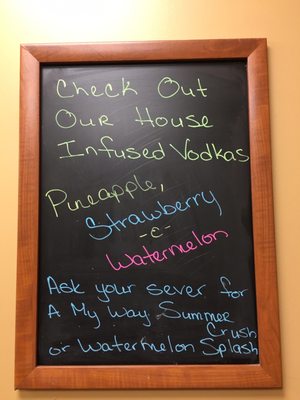 Check Out
Our House
Infused Vodkas
Pineapple,
Strawberry
-&-
Watermelon
Ask your sever for
A My Way Summer
Crush
or Watermelon Splash